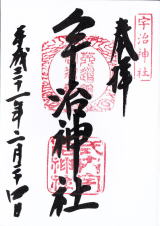 宇治神社
奉拝
宇治神社
平成三十一年二月二十四日